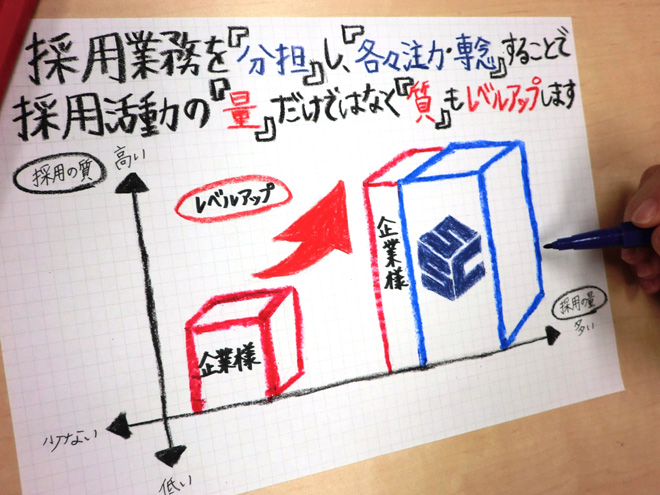 採用業務を『分担』し、各々注力・専念することで
採用活動の『量』だけではなく『質』もレベルアップします
採用の質
高い
レベルアップ
企業様
企業様
SSC
採用の量
多い
少ない
低い